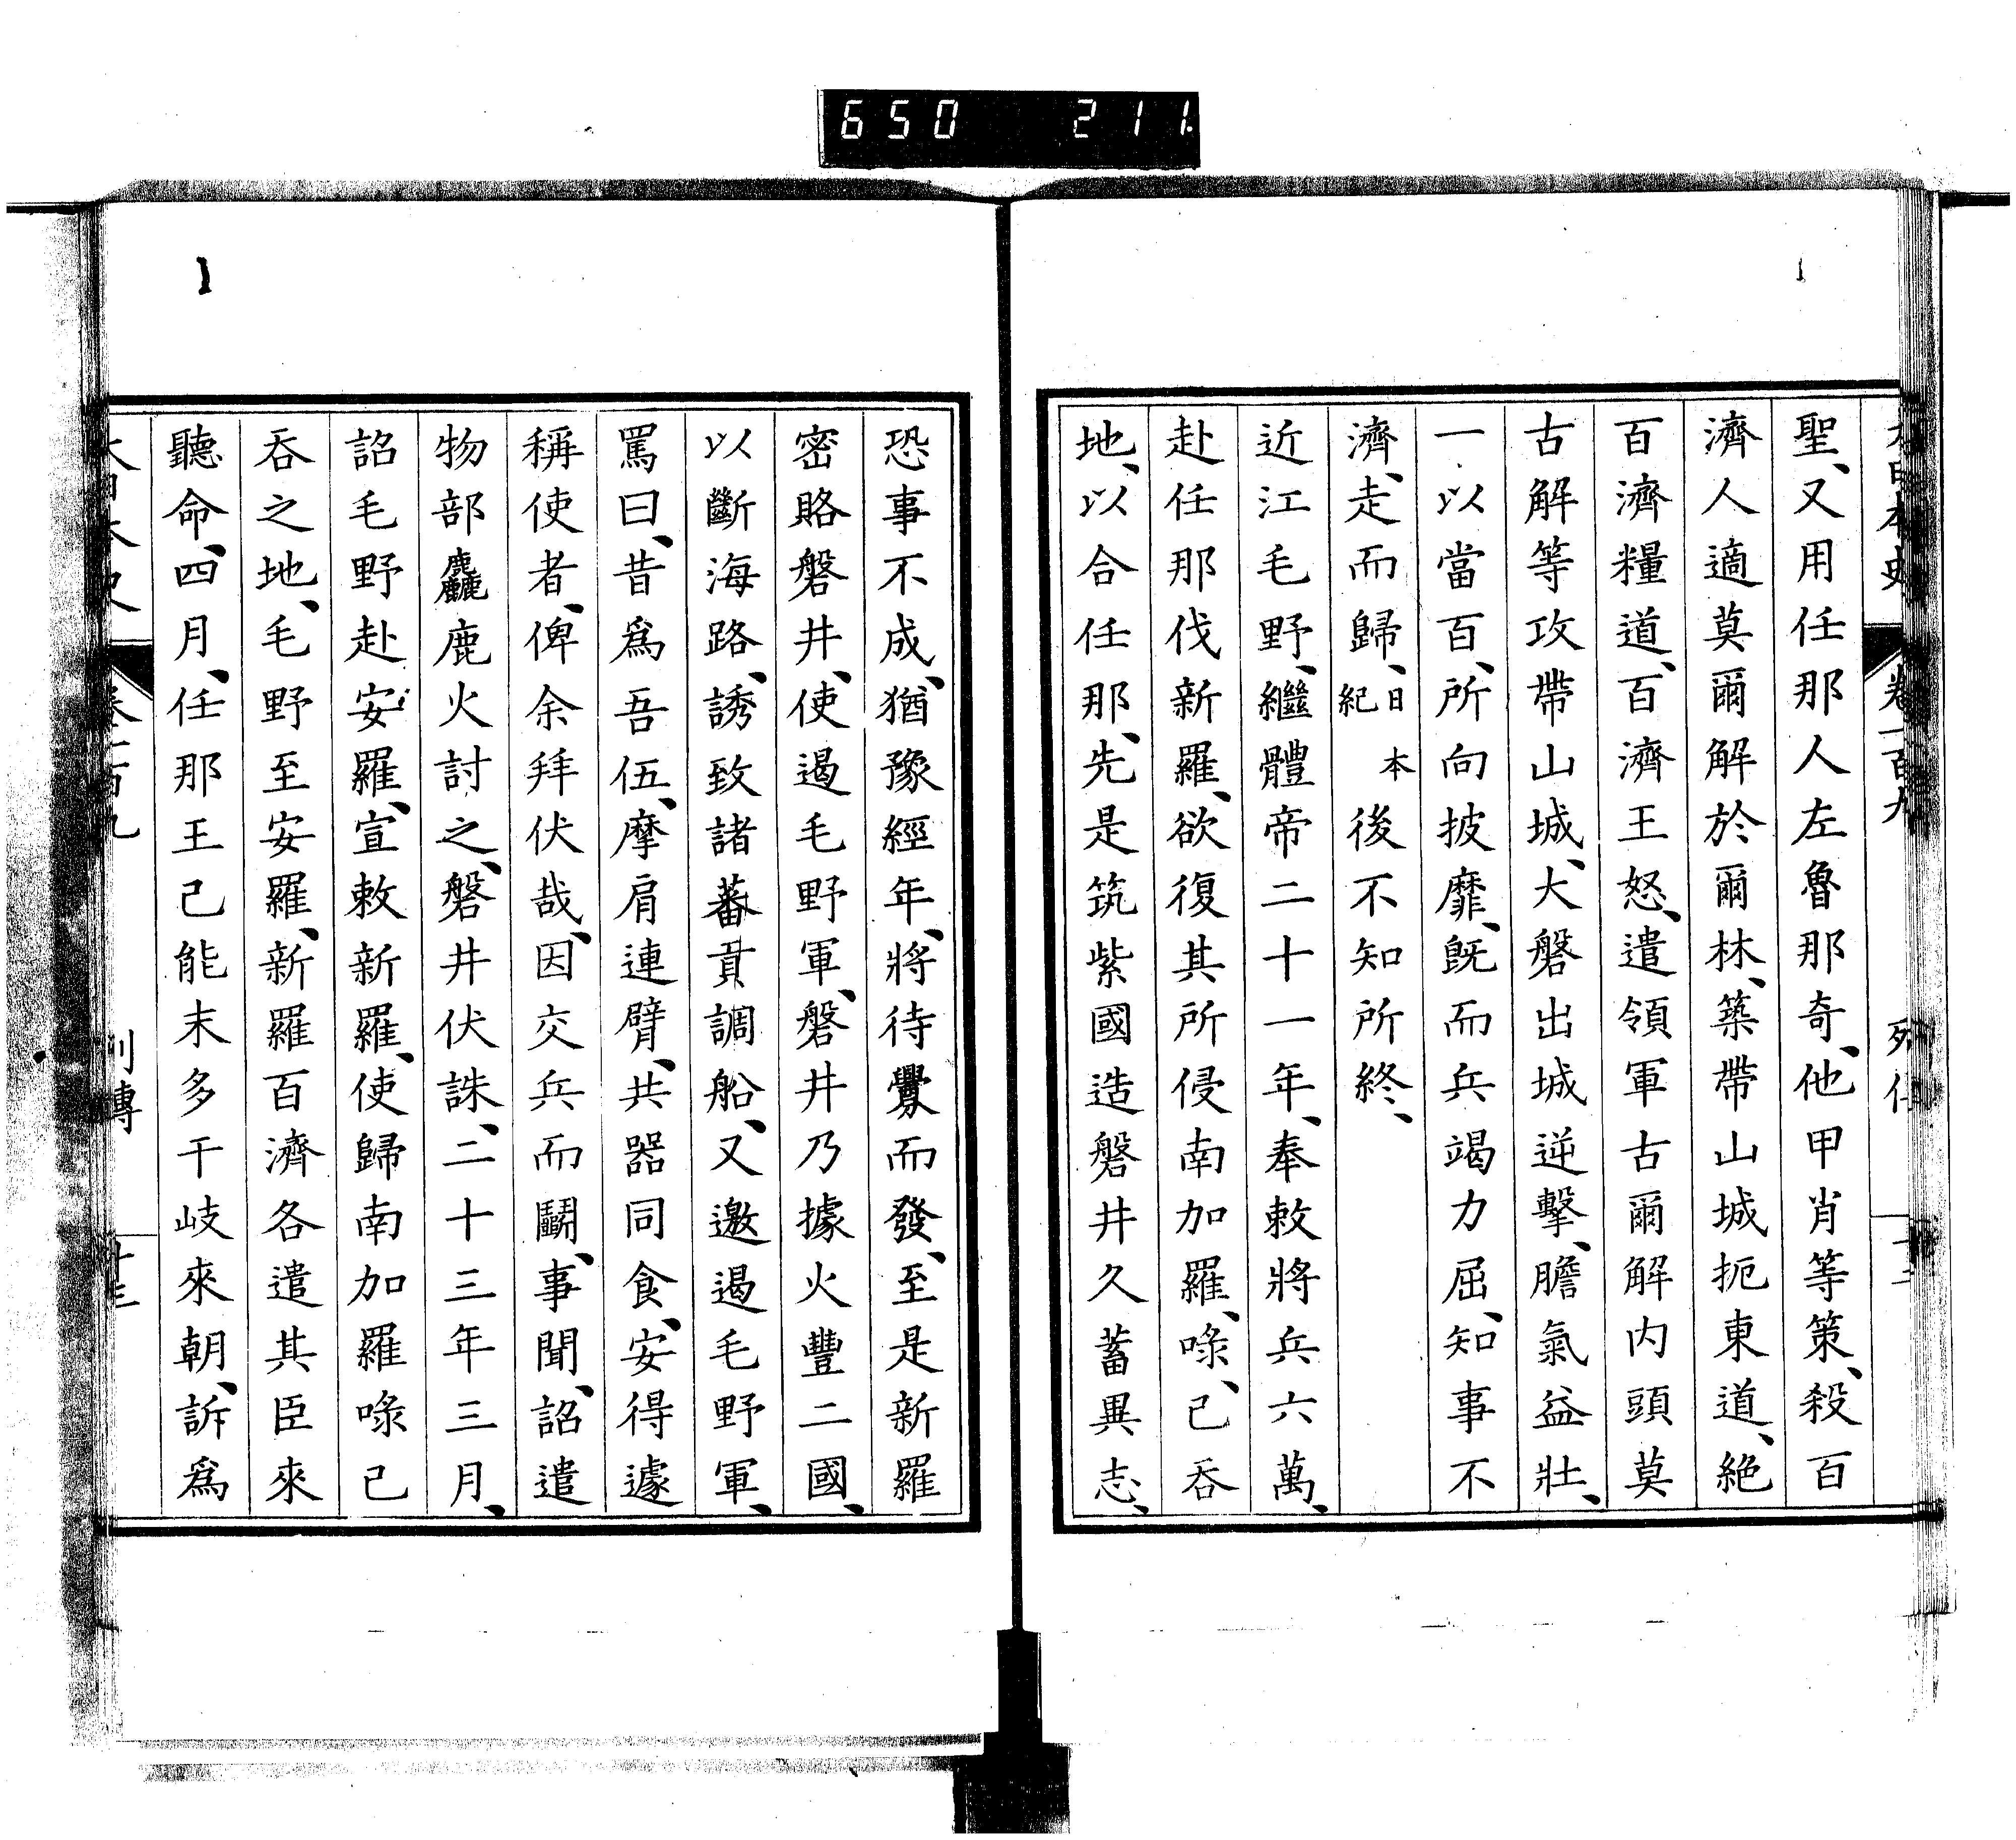 650 211.
大日本史 卷一百九 列傳
聖、又用任那人左魯那奇、他甲肖等策、殺百
濟人適莫爾解於爾林、築帶山城扼東道、絶
百濟糧道、百濟王怒、遣領軍古爾解内頭莫
古解等攻帶山城、大磐出城逆擊、膽氣益壯、
一以當百、所向披靡、旣而兵竭力屈、知事不
濟、走而歸、日本紀後不知所終、
近江毛野、繼體帝二十一年、奉敕將兵六萬、
赴任那伐新羅、欲復其所侵南加羅、㖨、己吞
地、以合任那、先是筑紫國造磐井久蓄異志、
恐事不成、猶豫經年、將待釁而發、至是新羅
密賂磐井、使遏毛野軍、磐井乃據火豐二國、
以斷海路、誘致諸蕃貢調船、又邀遏毛野軍、
罵曰、昔爲吾伍、摩肩連臂、共器同食、安得遽
稱使者、俾余拜伏哉、因交兵而鬭、事聞、詔遣
物部麤鹿火討之、磐井伏誅、二十三年三月、
詔毛野赴安羅、宣敕新羅、使歸南加羅㖨己
吞之地、毛野至安羅、新羅百濟各遣其臣來
聽命、四月、任那王己能末多干岐來朝、訴爲
大日本史 卷一百九 列傳